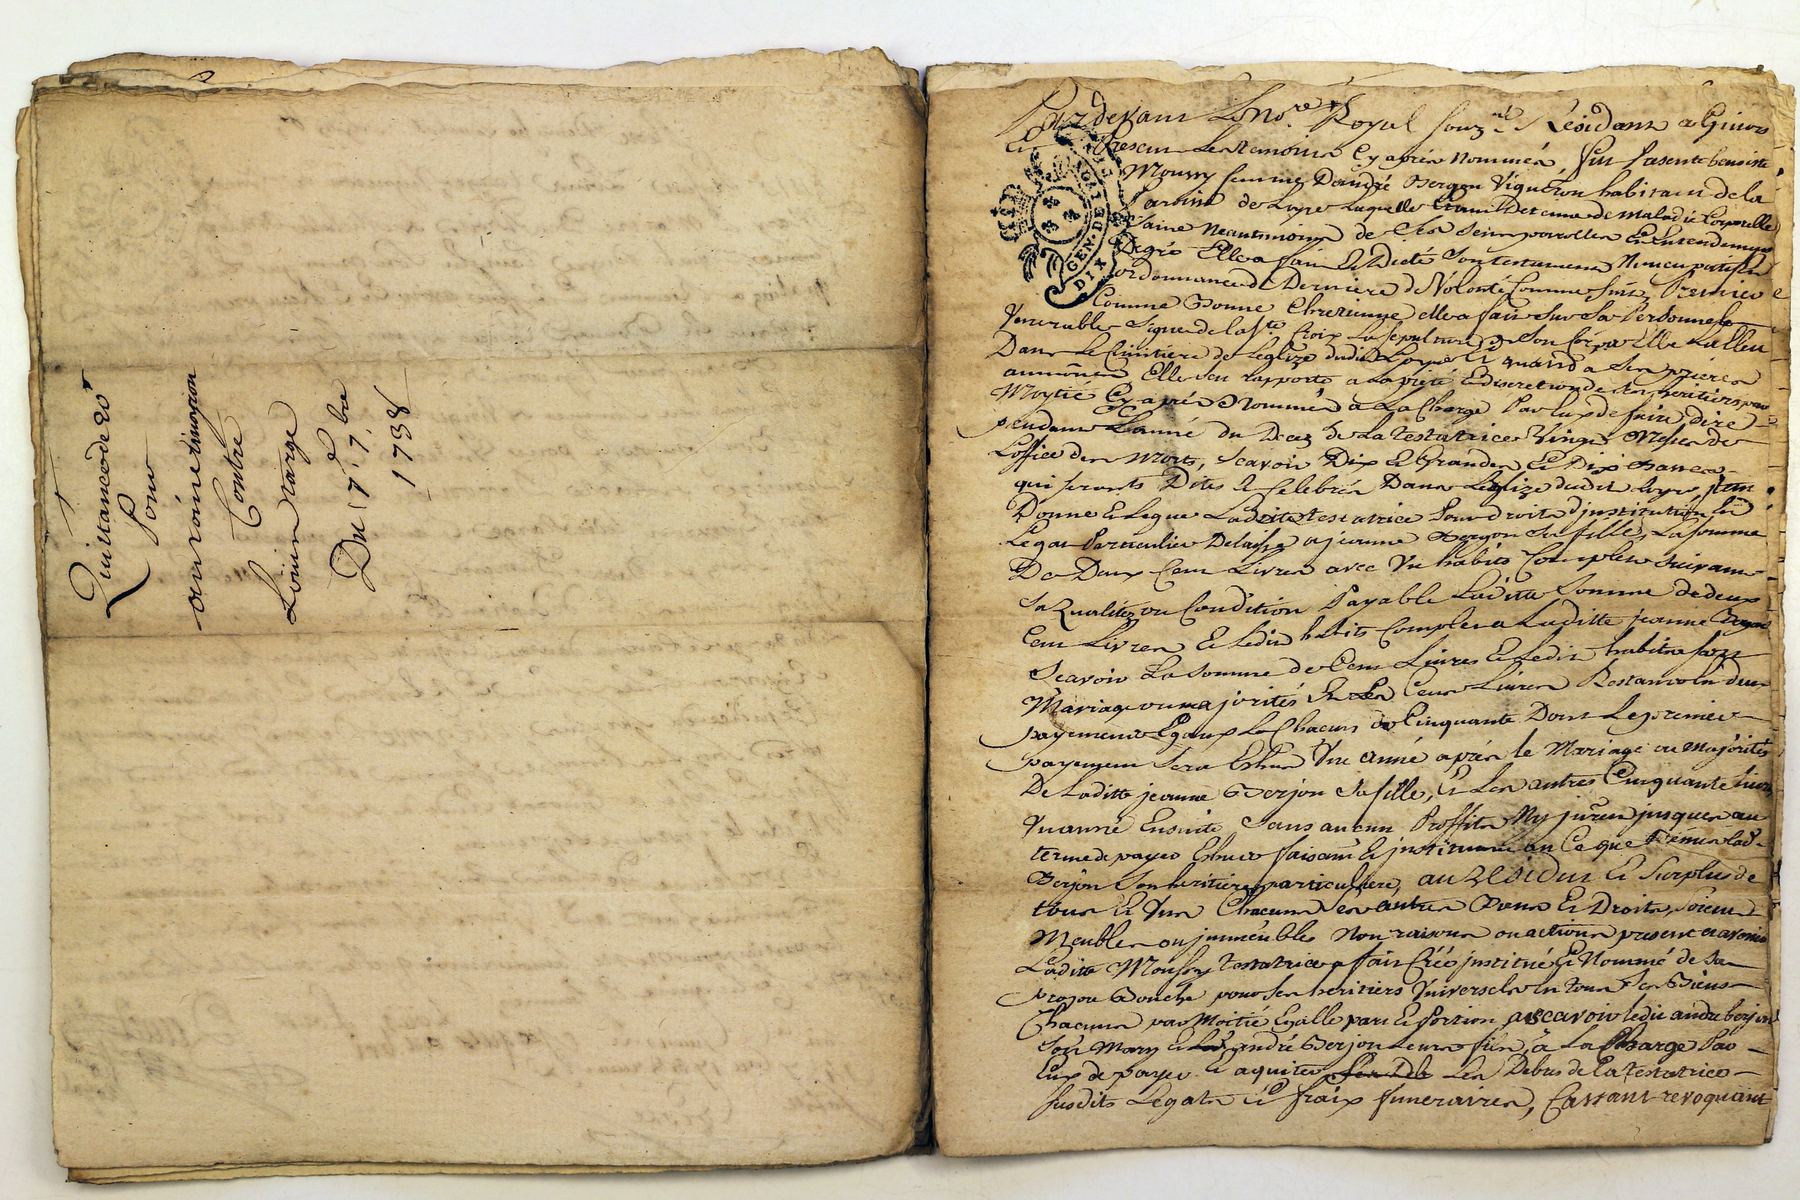 Quittance de 20ᵗᵗ
Pour
antoine
Contre
Louis Narge
Du 17ᵉ 7.bre
1738
GEN. DE LYON
DIX
Pardevant Le No.re Royal souz.né Résidant a Givors
Et Presents Les temoins Cy aprés Nommés, fut Presente benoiste
Moussy femme D'andré Berjon Vigneron habitant de la
Paroisse de Loyre Laquelle Etant Detenue de maladie Corporelle
Saine Neantmoins de Ses Sens parolles Et Entendement
Degré Elle a fait Et Dicté Son testament Nuncupatif Et
ordonnance de Derniere de Volonté Comme suit, Premiere
Comme Bonne Chretienne elle a fait Sur Sa Personne Le
Venerable Signe de la S.te Croix La sepulture de Son Corps Elle La Elleu
Dans Le Cimitiere de Leglize dudit Loyre Et quand a Ses prieres
aumônes Elle Sen rapporte a La pieté Et discretion de Ses heritiers par
Moytié Cy aprés Nommés a La Charge Par Eux de faire dire
pendant L'anné du Deces de La testatrice Vingt Messes de
L'office des Morts, Scavoir Dix Et Grandes Et Dix Basses
qui seronts Dites Et Celebrés Dans Leglize dudit Loyre, Item
Donne Et Legue Laditte testatrice Pour droit d'institution Et
Legat Particulier Delaisse a jeanne Berjon Sa fille, La somme
De Deux Cent Livres avec Un habits Complet Suivant
Sa Qualitez ou Condition Payable Laditte Somme de deux
Cent Livres Et Ledit habits Complet a Laditte jeanne Berjon
Scavoir La Somme de Cent Livres Et Ledit habits Lors
Mariage ou majorités Et Les Cent Livres Restant en deux
payements Egaux Le Chacun de Cinquante Dont Le premier
payement Sera Echus Une année aprés le Mariage ou Majorités
De Laditte jeanne Berjon Sa fille, Et Les autres Cinquante Livres
Un anné Ensuite Sans aucun Proffits Ny jusques au
terme de payer Echus faisant Et instituant En Ce que Dessus Lad.
Berjon Son heritiere particuliere, au Residus Et Surplus de
tous Et Uns Chacuns Ses autres Biens Et Droits, Soient
Meubles ou jmmeubles Nom raisons ou actions present et avenir
Ladite Moussy testatrice a fait Créé jnstitué Et Nommé de Sa
propre Bouche pour Ses heritiers Universels En tous Ses Biens
Chacuns par Moitié Egalle part Et Portion a scavoir ledit andré berjon
Son Mary Et andré Berjon Leurs fils, a La Charge Par
Eux de payer Et aquiter Les Debtes de La testatrice
Susdits Legats Et fraix funerairex, Cassant revoquant